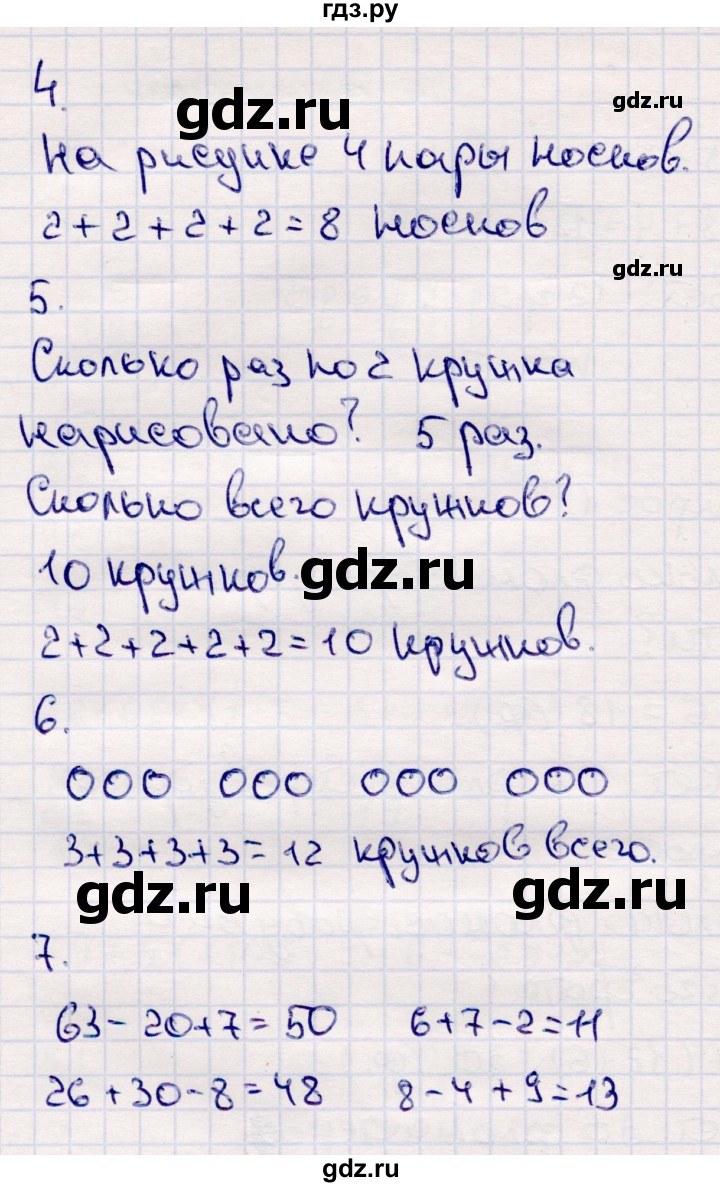 гдз.ру
4.
gdz.ru
gdz.ru
На рисунке 4 пары носков.
2+2+2+2=8 носков
gdz.ru
5.
Сколько раз по 2 кружка
нарисовано? 5 раз.
Сколько всего кружков?
10 кружков.
gdz.ru
2+2+2+2+2=10 кружков.
6.
000 000 000 000
3+3+3+3=12 кружков всего.
gdz.ru
gdz.ru
7.
63-20+7=50 6+7-2=11
26+30-8=48 8-4+9=13
gdz.ru